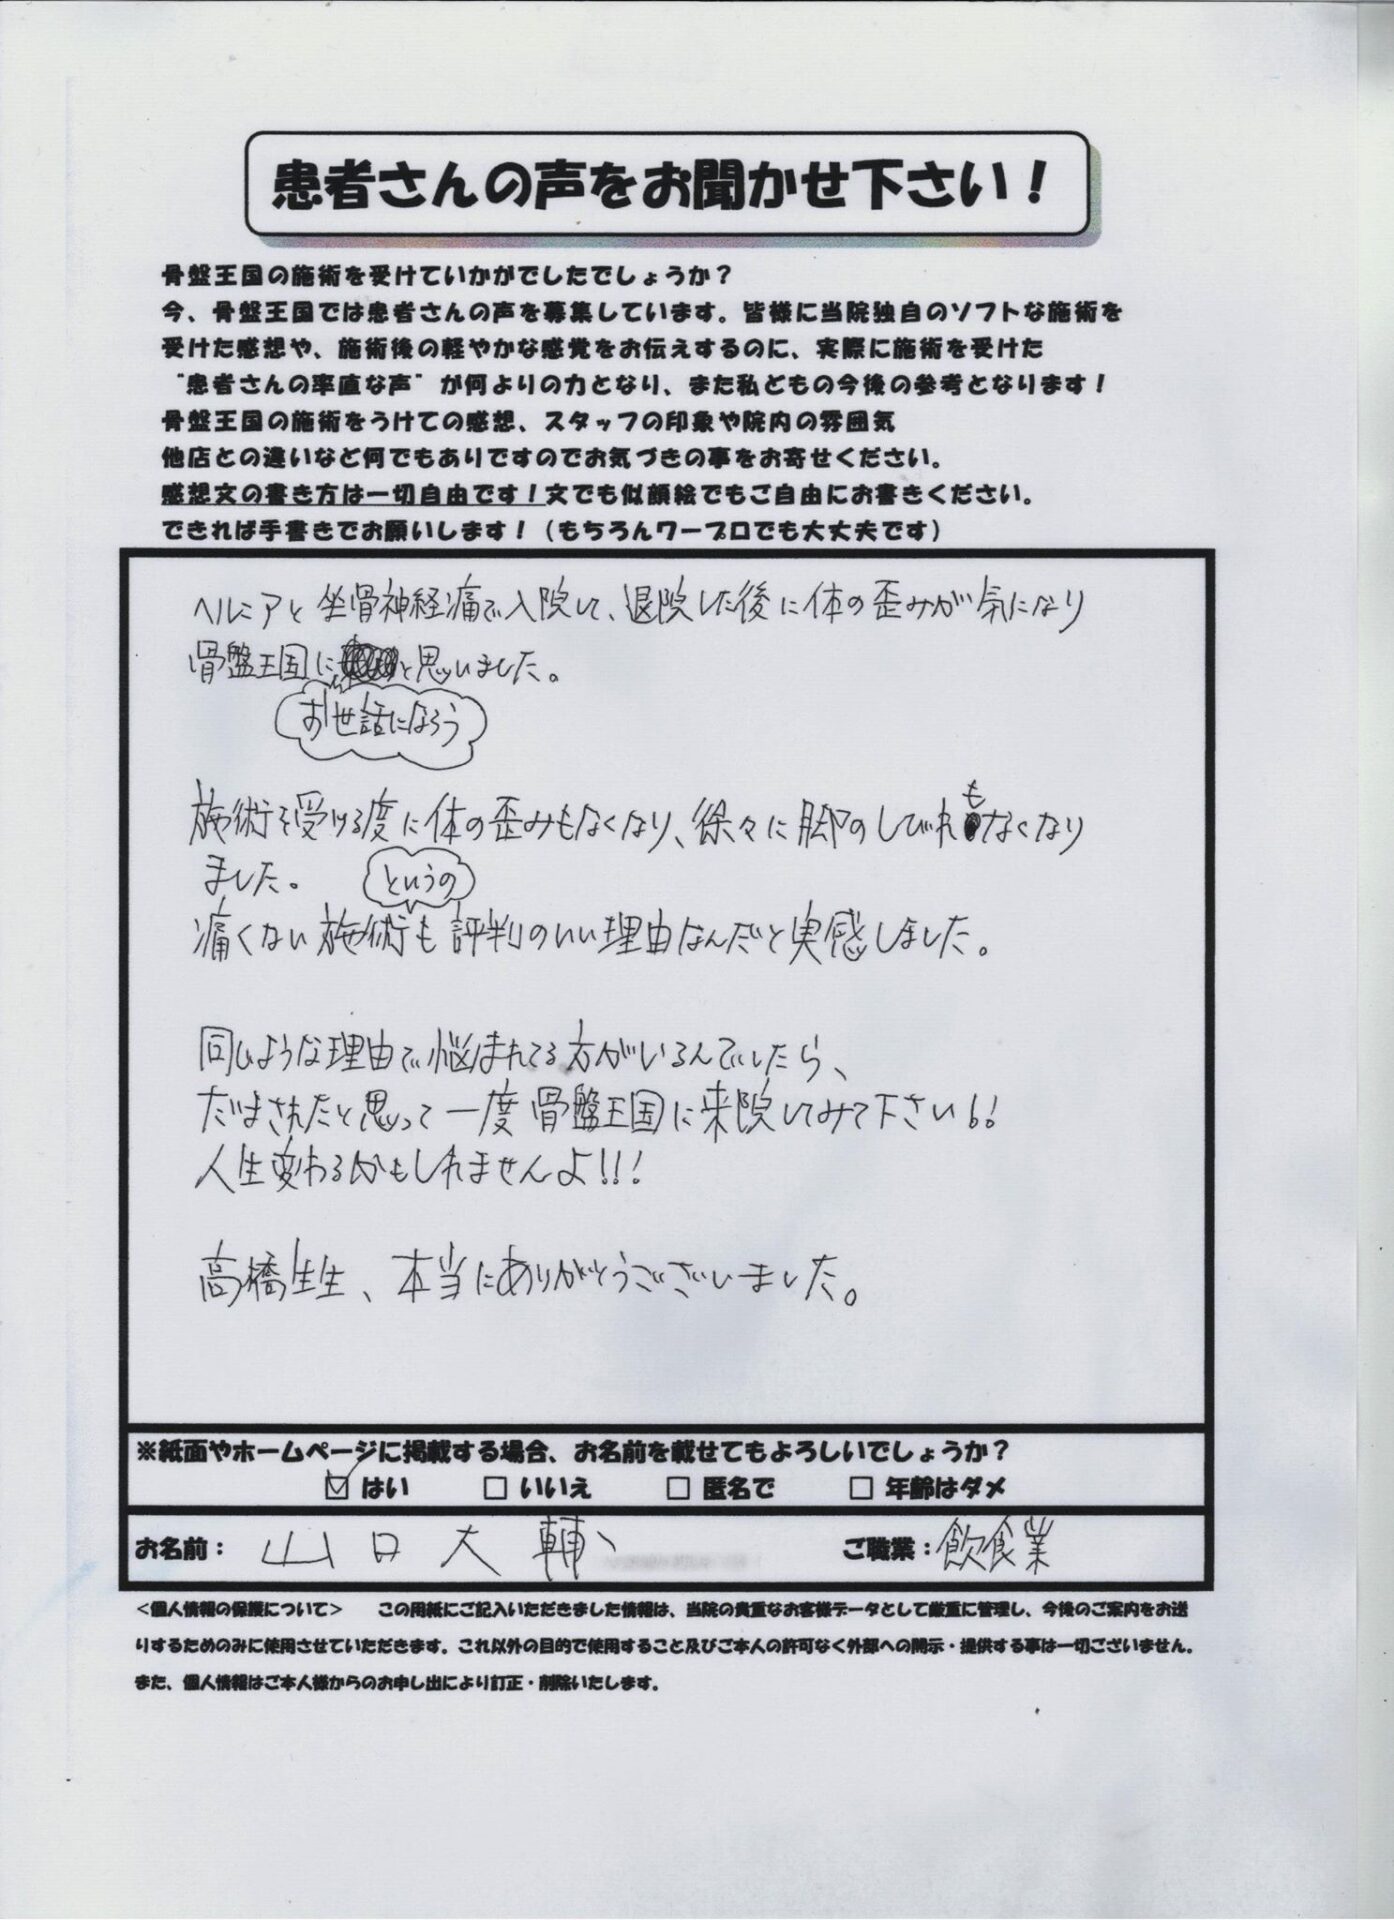 患者さんの声をお聞かせ下さい！
骨盤王国の施術を受けていかがでしたでしょうか？
今、骨盤王国では患者さんの声を募集しています。皆様に当院独自のソフトな施術を
受けた感想や、施術後の軽やかな感覚をお伝えするのに、実際に施術を受けた
“患者さんの率直な声”が何よりの力となり、また私どもの今後の参考となります！
骨盤王国の施術をうけての感想、スタッフの印象や院内の雰囲気
他店との違いなど何でもありですのでお気づきの事をお寄せください。
感想文の書き方は一切自由です！文でも似顔絵でもご自由にお書きください。
できれば手書きでお願いします！（もちろんワープロでも大丈夫です）
ヘルニアと坐骨神経痛で入院して、退院した後に体の歪みが気になり
骨盤王国にお世話になろうと思いました。
施術を受ける度に体の歪みもなくなり、徐々に脚のしびれもなくなり
ました。
痛くない施術というのも評判のいい理由なんだと実感しました。
同じような理由で悩まれてる方がいるんでしたら、
だまされたと思って一度骨盤王国に来院してみて下さい!!
人生変わるかもしれませんよ!!!
高橋先生、本当にありがとうございました。
※紙面やホームページに掲載する場合、お名前を載せてもよろしいでしょうか？
☑はい □いいえ □匿名で □年齢はダメ
お名前：山口大輔 ご職業：飲食業
＜個人情報の保護について＞ この用紙にご記入いただきました情報は、当院の貴重なお客様データとして厳重に管理し、今後のご案内をお送
りするためのみに使用させていただきます。これ以外の目的で使用すること及びご本人の許可なく外部への開示・提供する事は一切ございません。
また、個人情報はご本人様からのお申し出により訂正・削除いたします。